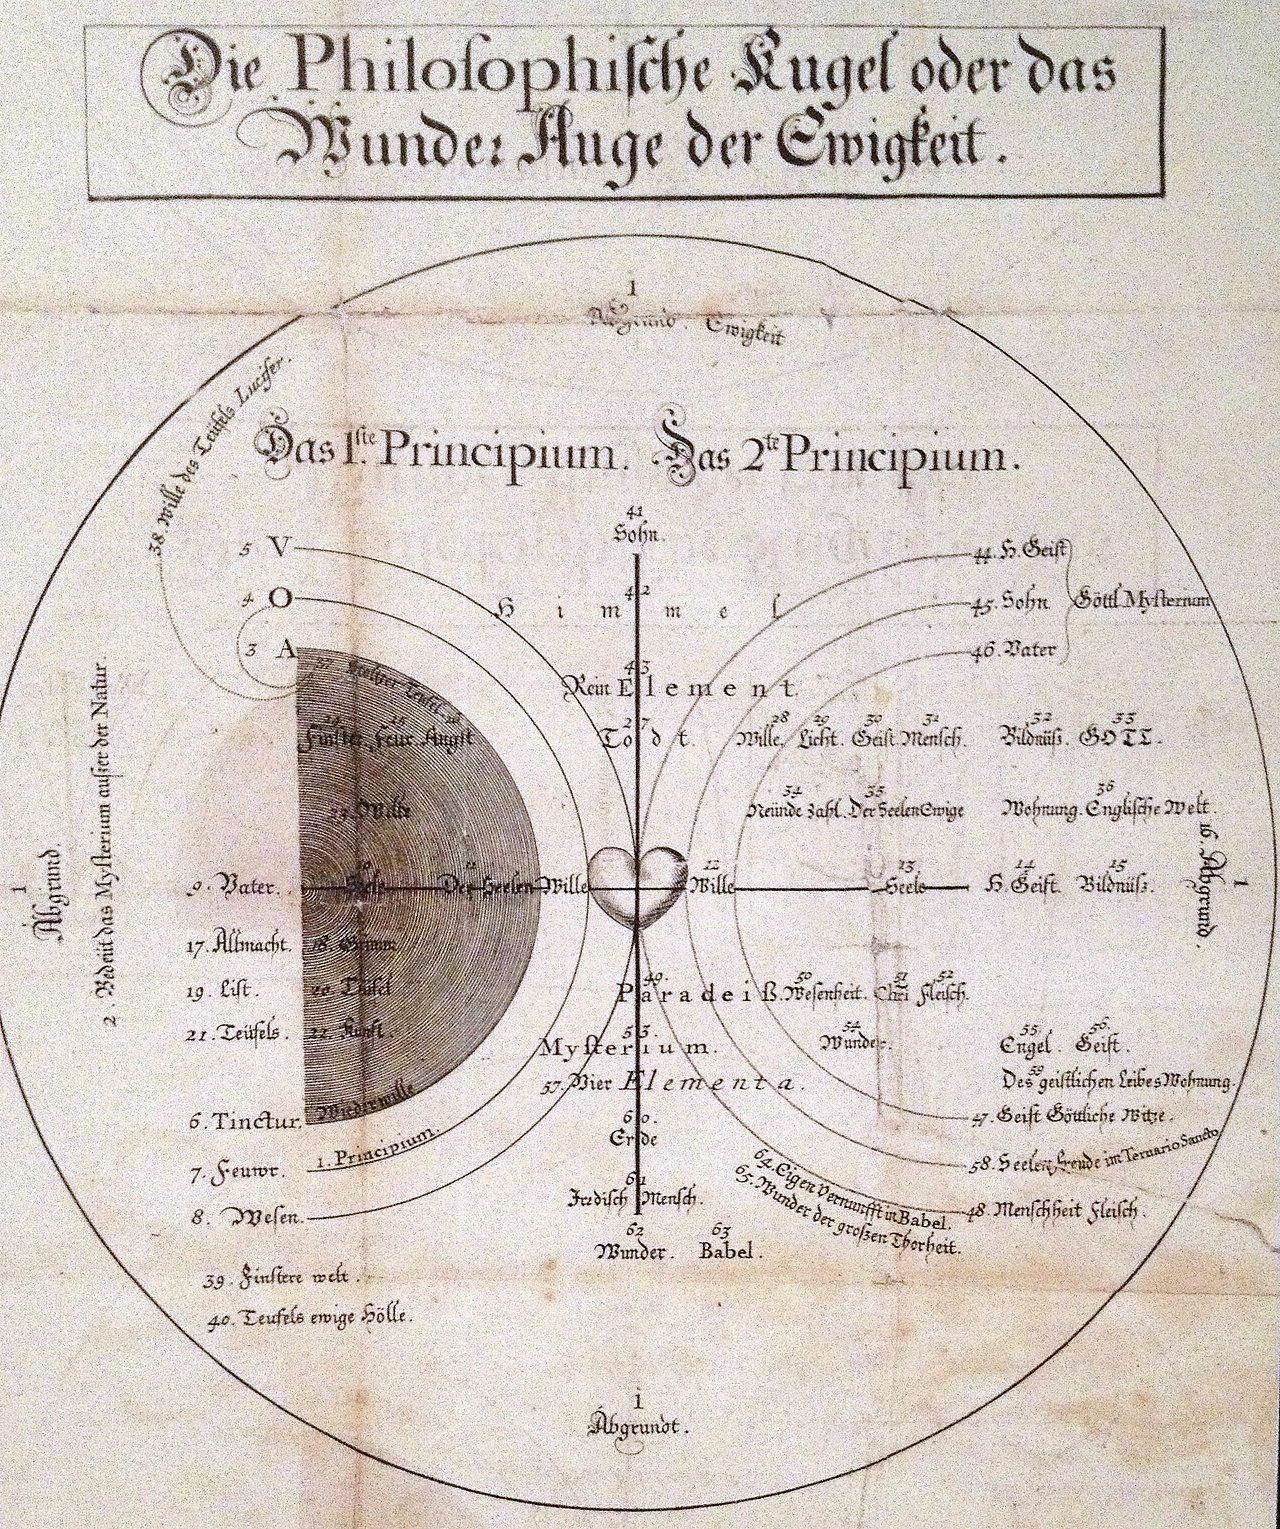 Die Philosophische Kugel oder das
Wunder Auge der Ewigkeit.
1
Abgrund. Ewigkeit
38. Wille des Teüfels Lucifer.
Das 1ste Principium. Das 2te Principium.
41
Sohn.
5 V
44. H. Geist
4 O
42
Himmel
45. Sohn
Göttl. Mysterium
3 A
46. Vater
43
Rein Element.
27 28 29 30 31 32 33
Todt. Wille. Licht. Geist. Mensch. Bildnüß. GOTT.
25
Finster Feur Angst
34 35 36
Neünde Zahl. Der Seelen Ewige Wohnung. Englische Welt.
23. Wille
1
Abgrund.
2. Bedeüt das Mysterium außer der Natur.
10 11 12 13 14 15
9. Vater. Seele Der Seelen Wille Wille Seele H. Geist. Bildnüß.
16. Abgrund.
1
17. Allmacht. 18. Grimm
19. List. 20. Teüfel
21. Teüfels. 22. Kunst.
49. 50 51 52
Paradeiß. Wesenheit. Chri Fleisch.
53. 54 55 56.
Mysterium. Wunder. Engel. Geist.
57. Vier Elementa.
59
Des geistlichen Leibes Wohnung.
6. Tinctur. Wiederwille
60.
Erde
47. Geist Göttliche Witze.
7. Feuwr. 1. Principium.
58. Seelen Freude im Ternario Sancto
61
Irrdisch Mensch.
64. Eigen Vernunfft in Babel.
65. Wunder der großen Thorheit.
8. Wesen.
48. Menschheit Fleisch.
62 63
Wunder. Babel.
39. Finstere welt.
40. Teufels ewige Hölle.
1
Abgrundt.